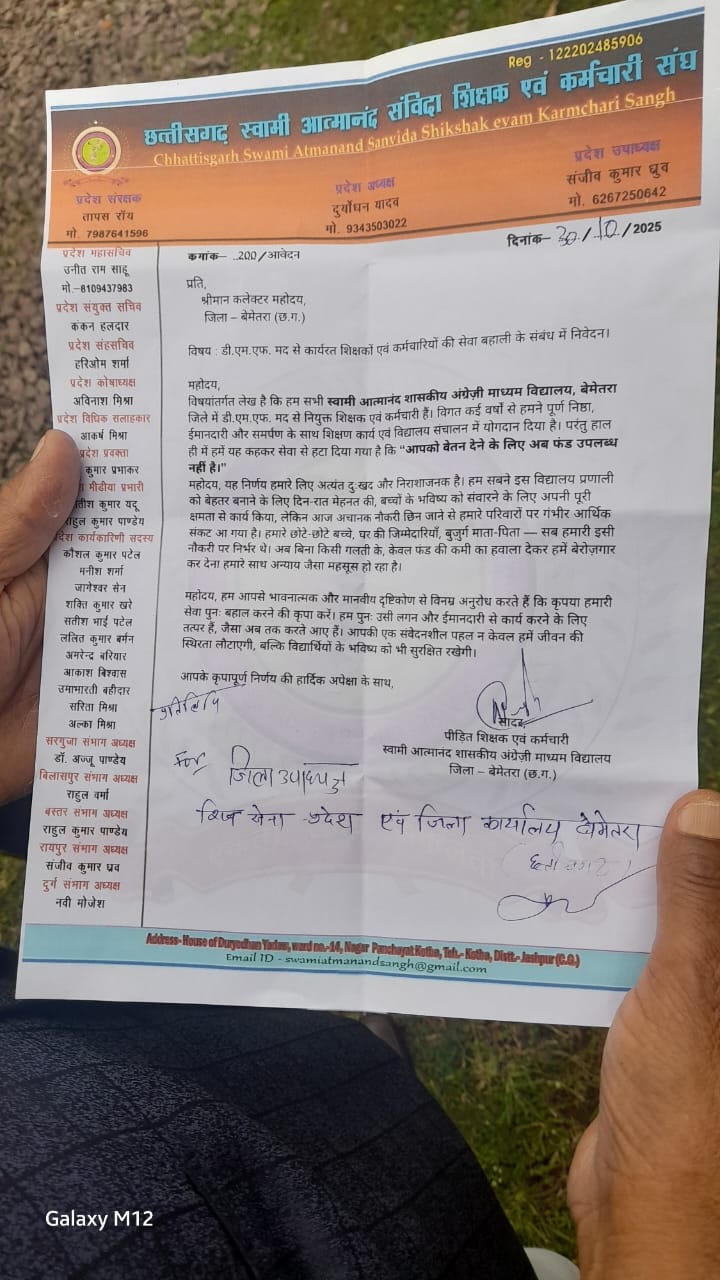 Reg - 122202485906
छत्तीसगढ़ स्वामी आत्मानंद संविदा शिक्षक एवं कर्मचारी संघ
Chhattisgarh Swami Atmanand Sanvida Shikshak evam Karmchari Sangh
प्रदेश संरक्षक
तापस रॉय
मो. 7987641596
प्रदेश अध्यक्ष
दुर्योधन यादव
मो. 9343503022
प्रदेश उपाध्यक्ष
संजीव कुमार ध्रुव
मो. 6267250642
प्रदेश महासचिव
उनीत राम साहू
मो.-8109437983
प्रदेश संयुक्त सचिव
कंकन हलदार
प्रदेश सहसचिव
हरिओम शर्मा
प्रदेश कोषाध्यक्ष
अविनाश मिश्रा
प्रदेश विधिक सलाहकार
आकर्ष मिश्रा
प्रदेश प्रवक्ता
कुमार प्रभाकर
मीडीया प्रभारी
कुमार यदू
राहुल कुमार पाण्डेय
कार्यकारिणी सदस्य
कौशल कुमार पटेल
मनीश शर्मा
जागेश्वर सेन
शक्ति कुमार खरे
सतीश भाई पटेल
ललित कुमार बर्मन
अमरेन्द्र बरियार
आकाश बिश्वास
उमाभारती बहीदार
सरिता मिश्रा
अल्का मिश्रा
सरगुजा संभाग अध्यक्ष
डॉ. अज्जू पाण्डेय
बिलासपुर संभाग अध्यक्ष
राहुल वर्मा
बस्तर संभाग अध्यक्ष
राहुल कुमार पाण्डेय
रायपुर संभाग अध्यक्ष
संजीव कुमार ध्रव
दुर्ग संभाग अध्यक्ष
नवी मोजेश
कमांक– ..200/आवेदन
दिनांक– 30/10/2025
प्रति,
श्रीमान कलेक्टर महोदय,
जिला – बेमेतरा (छ.ग.)
विषय : डी.एम.एफ. मद से कार्यरत शिक्षकों एवं कर्मचारियों की सेवा बहाली के संबंध में निवेदन।
महोदय,
विषयांतर्गत लेख है कि हम सभी स्वामी आत्मानंद शासकीय अंग्रेज़ी माध्यम विद्यालय, बेमेतरा
जिले में डी.एम.एफ. मद से नियुक्त शिक्षक एवं कर्मचारी हैं। विगत कई वर्षो से हमने पूर्ण निष्ठा,
ईमानदारी और समर्पण के साथ शिक्षण कार्य एवं विद्यालय संचालन में योगदान दिया है। परंतु हाल
ही में हमें यह कहकर सेवा से हटा दिया गया है कि “आपको बेतन देने के लिए अब फंड उपलब्ध
नहीं है।”
महोदय, यह निर्णय हमारे लिए अत्यंत दुःखद और निराशाजनक है। हम सबने इस विद्यालय प्रणाली
को बेहतर बनाने के लिए दिन-रात मेहनत की, बच्चों के भविष्य को संवारने के लिए अपनी पूरी
क्षमता से कार्य किया, लेकिन आज अचानक नौकरी छिन जाने से हमारे परिवारों पर गंभीर आर्थिक
संकट आ गया है। हमारे छोटे-छोटे बच्चे, घर की जिम्मेदारियाँ, बुजुर्ग माता-पिता – सब हमारी इसी
नौकरी पर निर्भर थे। अब बिना किसी गलती के, केवल फंड की कमी का हवाला देकर हमें बेरोज़गार
कर देना हमारे साथ अन्याय जैसा महसूस हो रहा है।
महोदय, हम आपसे भावनात्मक और मानवीय दृष्टिकोण से विनम्र अनुरोध करते हैं कि कृपया हमारी
सेवा पुनः बहाल करने की कृपा करें। हम पुनः उसी लगन और ईमानदारी से कार्य करने के लिए
तत्पर हैं, जैसा अब तक करते आए हैं। आपकी एक संवेदनशील पहल न केवल हमें जीवन की
स्थिरता लौटाएगी, बल्कि विद्यार्थियों के भविष्य को भी सुरक्षित रखेगी।
आपके कृपापूर्ण निर्णय की हार्दिक अपेक्षा के साथ,
प्रतिलिपि
सादर,
पीडित शिक्षक एवं कर्मचारी
स्वामी आत्मानंद शासकीय अंग्रेज़ी माध्यम विद्यालय
जिला – बेमेतरा (छ.ग.)
For जिला उपाध्यक्ष
शिव सेना प्रदेश एवं जिला कार्यालय बेमेतरा
Address- House of Duryodhan Yadav, ward no.-14, Nagar Panchayat Kotba, Teh.- Kotba, Distt.- Jashpur (C.G.)
Email ID - swamiatmanandsangh@gmail.com
Galaxy M12